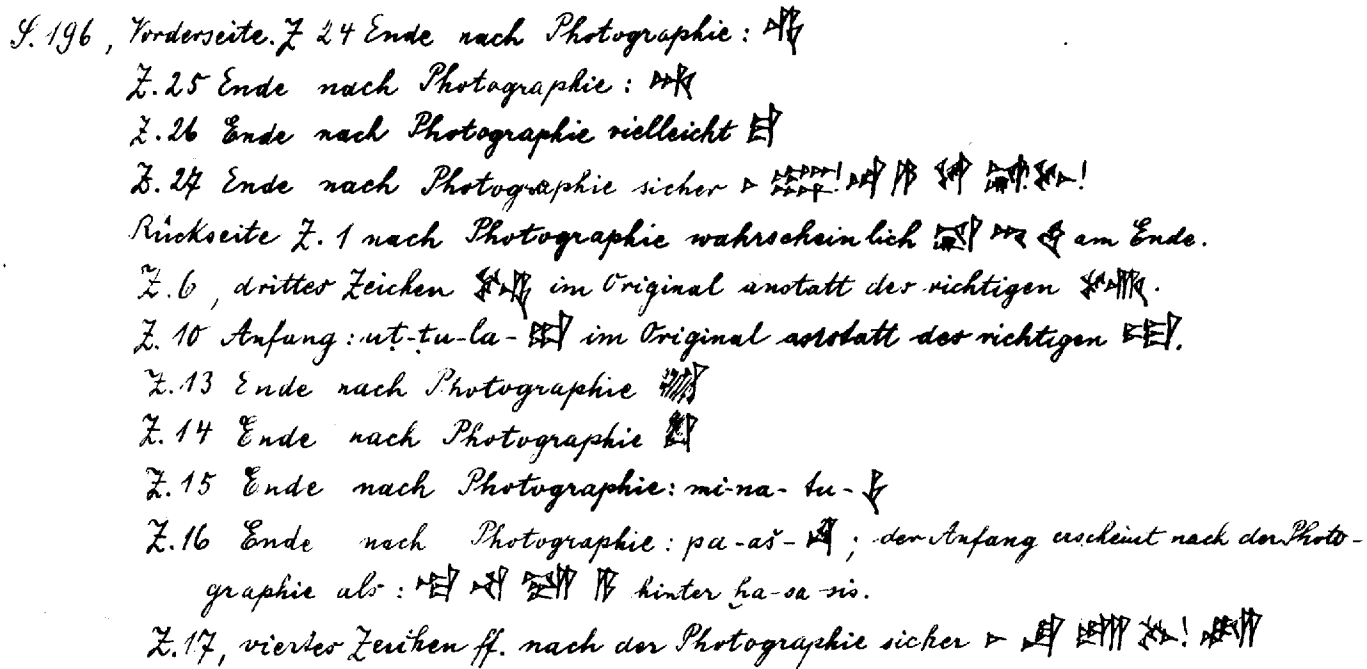 S. 196, Vorderseite. Z 24 Ende nach Photographie:
Z. 25 Ende nach Photographie:
Z. 26 Ende nach Photographie vielleicht
Z. 27 Ende nach Photographie sicher
Rückseite Z. 1 nach Photographie wahrscheinlich am Ende.
Z. 6, drittes Zeichen im Original anstatt des richtigen .
Z. 10 Anfang: uṭ-ṭu-la- im Original anstatt des richtigen .
Z. 13 Ende nach Photographie
Z. 14 Ende nach Photographie
Z. 15 Ende nach Photographie: mi-na-tu-
Z. 16 Ende nach Photographie: pa-aš- ; der Anfang erscheint nach der Photo-
graphie als: hinter ḫa-sa-sis.
Z. 17, viertes Zeichen ff. nach der Photographie sicher